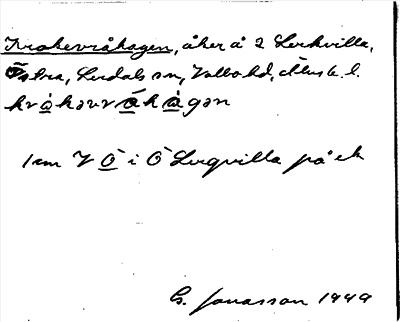 Krokevråhagen, åker å 2 Lerkvilla,
Östra, Lerdals sn, Valbo hd, Älvsb. l.
krⱥkəvrⱥ́kⱥ̀gən
1 cm V Ö i Ö Lergvilla på ek
G. Jonasson 1949